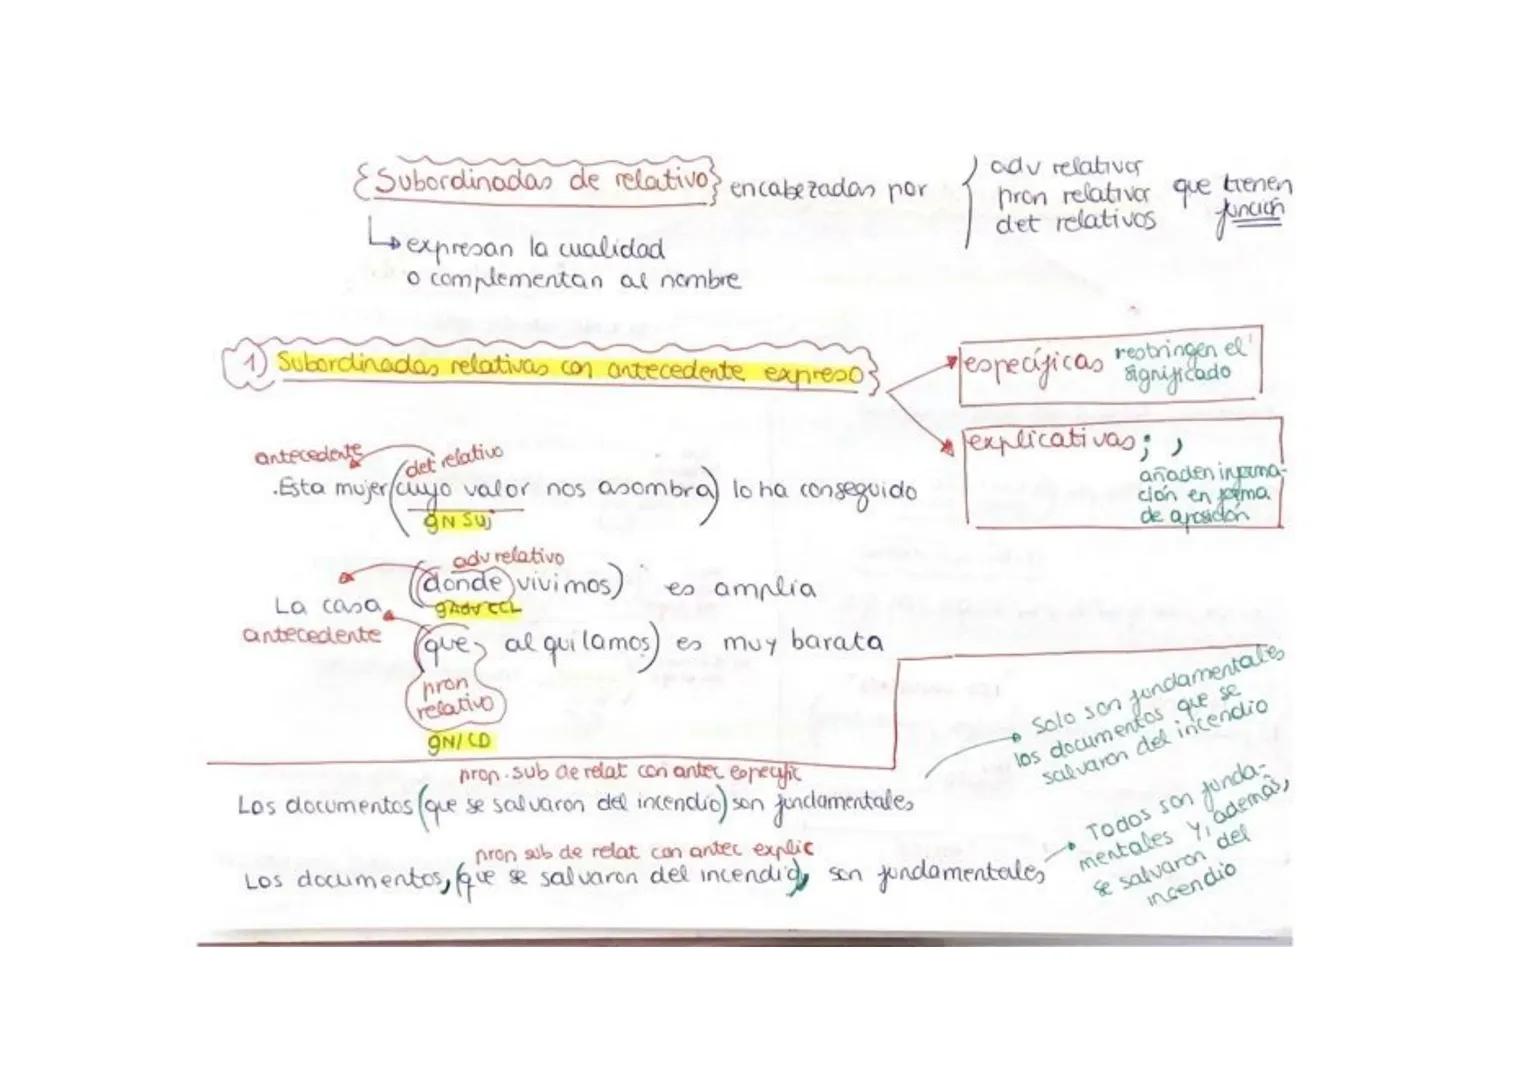 Subordinadas de relativo encabezadas por
adv relativos
pron relativos
det relativos
que tienen
función
expresan la cualidad
o complementan al nombre
1) Subordinadas relativas con antecedente expreso
específicas restringen el
significado
explicativas; ,
añaden informa-
ción en forma
de aposición
antecedente
det relativo
.Esta mujer (cuyo valor nos asombra) lo ha conseguido
gN Suj
adv relativo
(donde vivimos) es amplia
gAdv CCL
La casa
antecedente
(que alquilamos) es muy barata
pron
relativo
gN/CD
prop. sub de relat con antec especific
Los documentos (que se salvaron del incendio) son fundamentales
Solo son fundamentales
los documentos que se
salvaron del incendio
pron sub de relat con antec explic
Los documentos, (que se salvaron del incendio), son fundamentales
Todos son funda-
mentales y, además,
se salvaron del
incendio